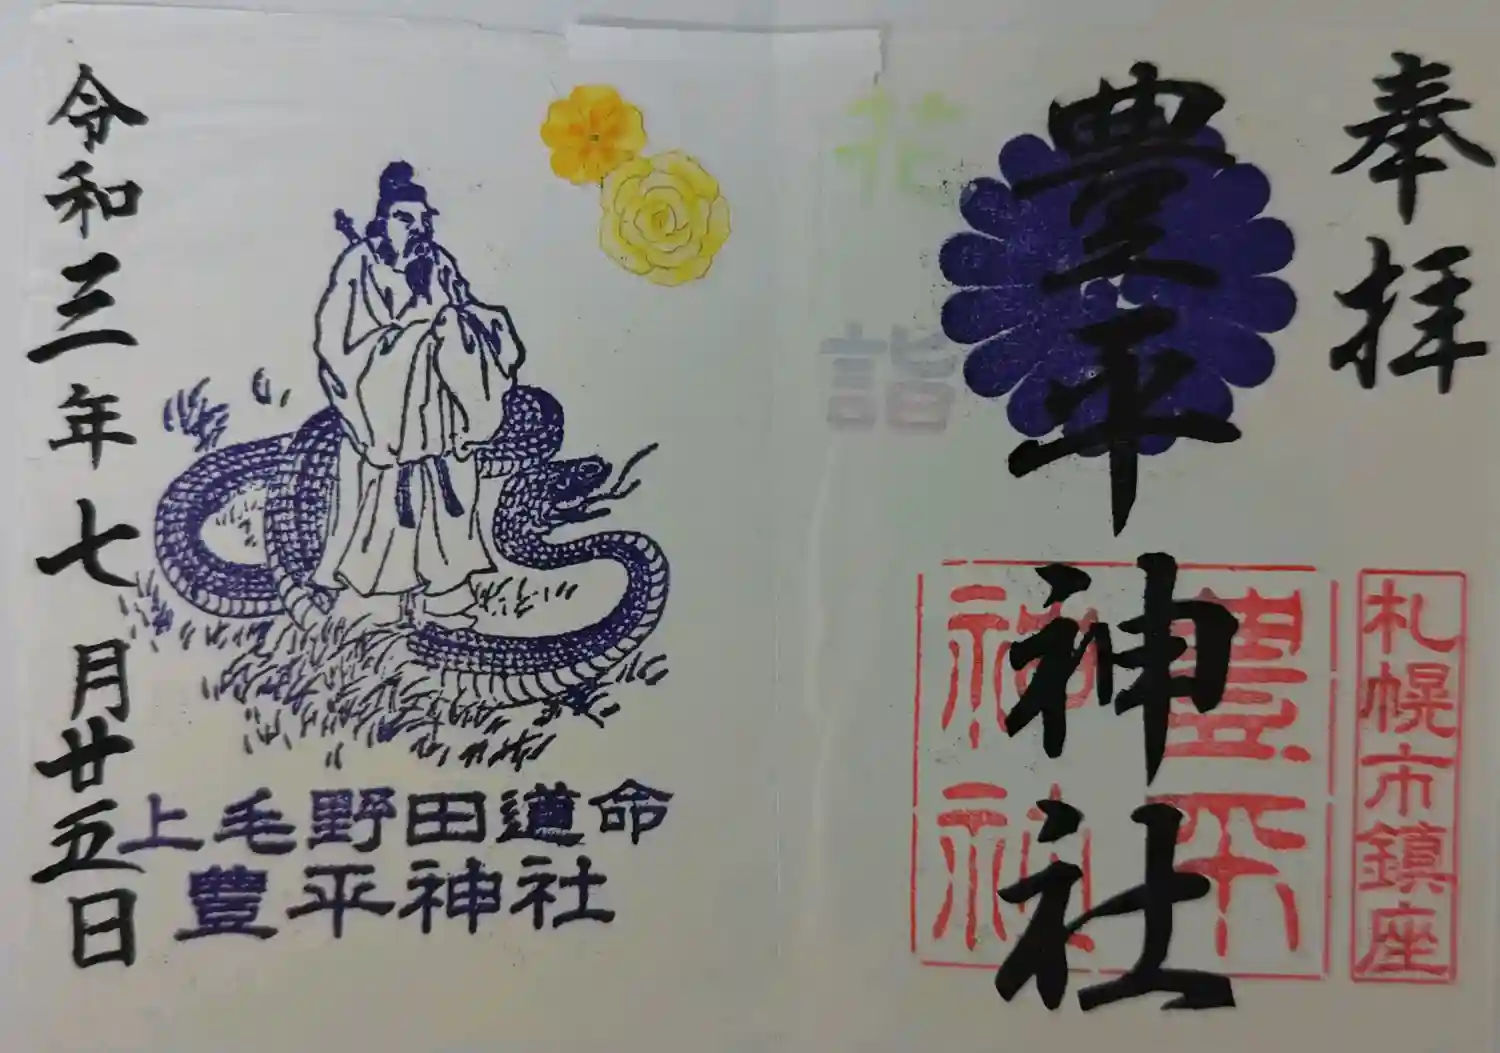 奉拝
豊平神社
札幌市鎮座
豊平
神社
花
詣
上毛野田道命
豊平神社
令和三年七月廿五日